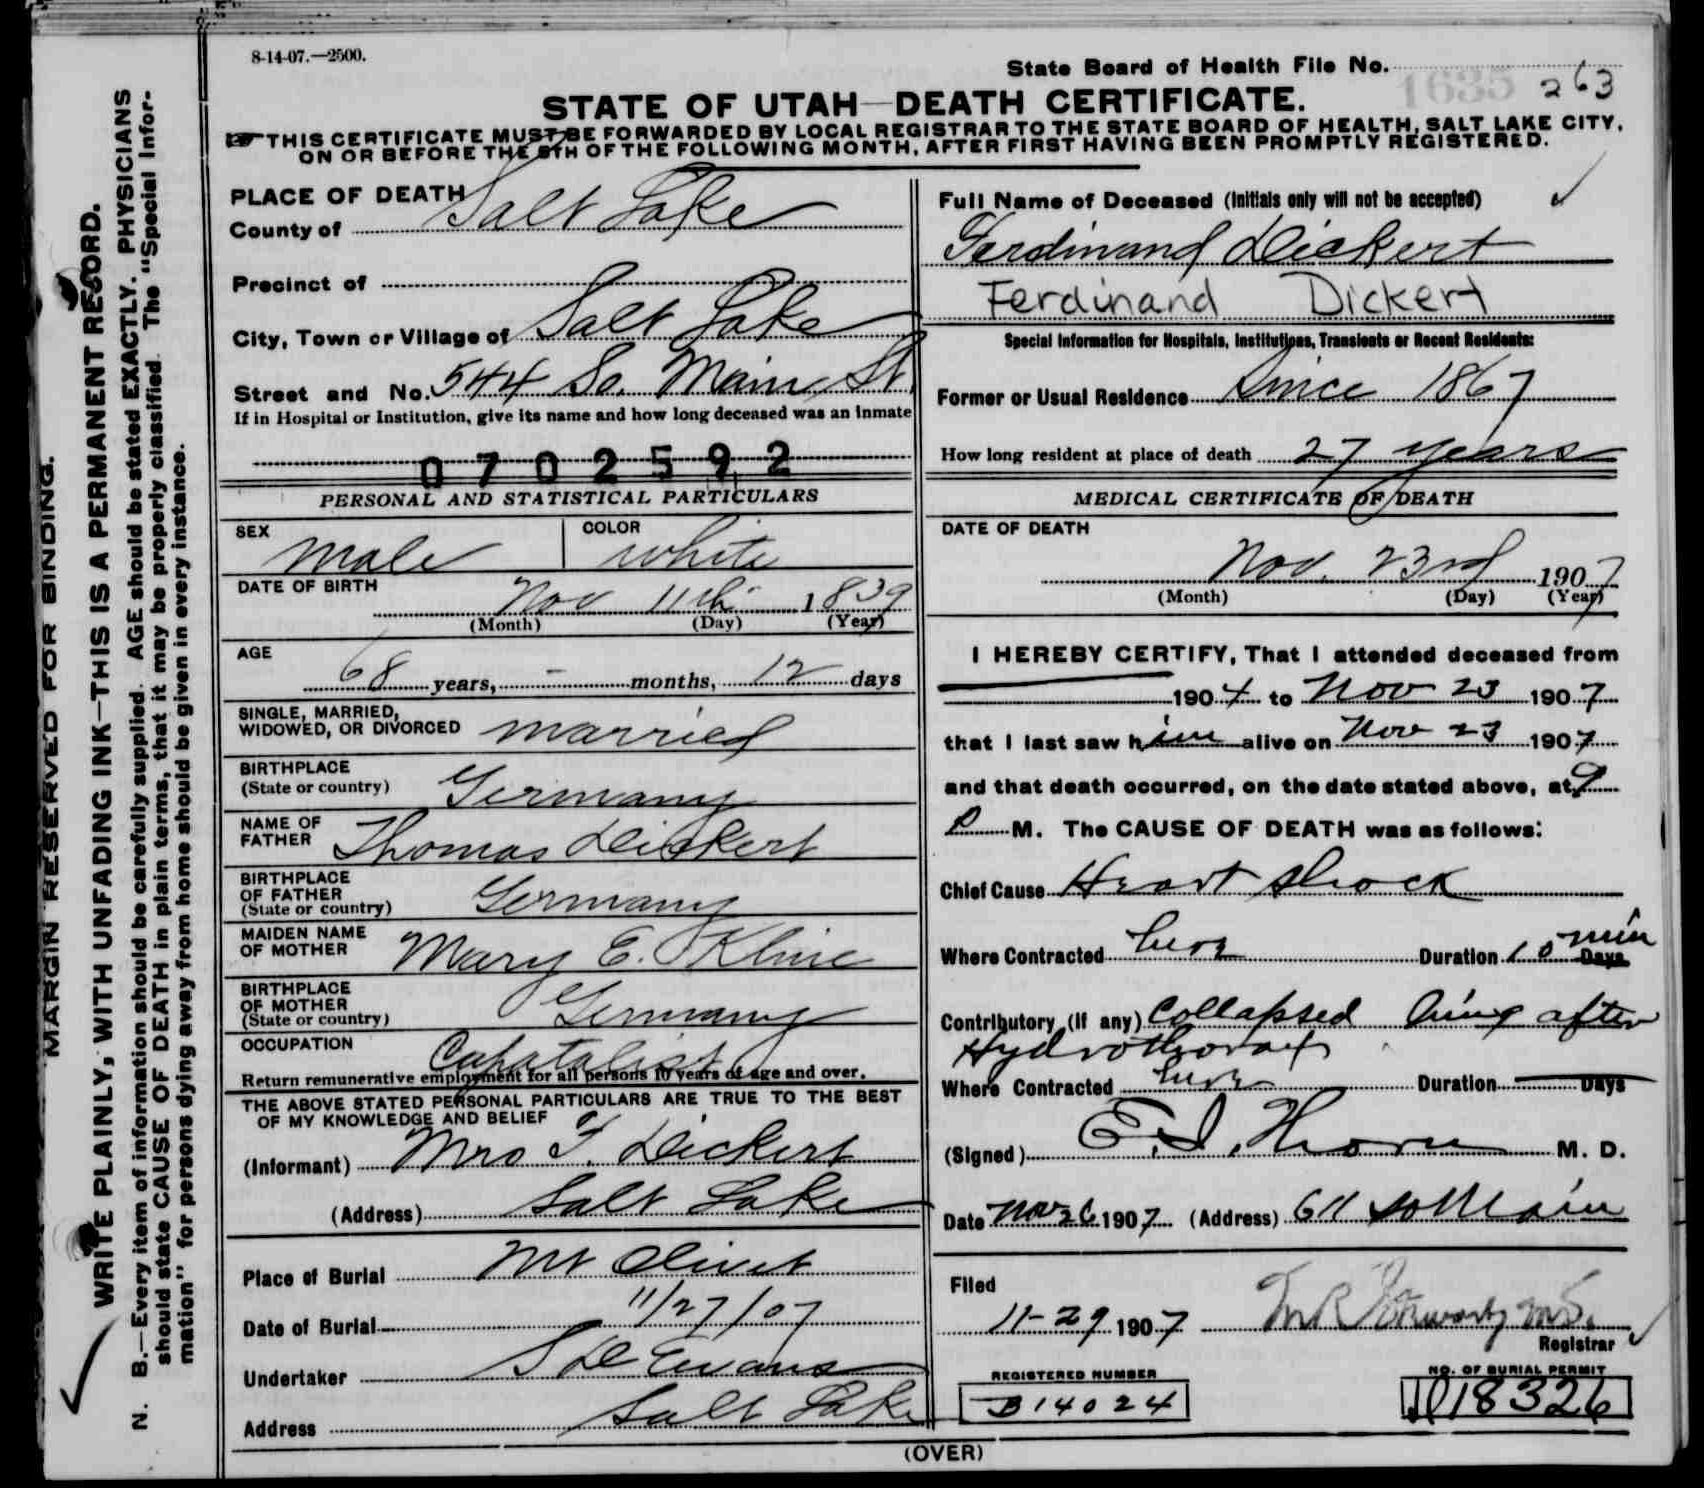 8-14-07.—2500.
State Board of Health File No. 1635 263
STATE OF UTAH—DEATH CERTIFICATE.
THIS CERTIFICATE MUST BE FORWARDED BY LOCAL REGISTRAR TO THE STATE BOARD OF HEALTH, SALT LAKE CITY,
ON OR BEFORE THE 5TH OF THE FOLLOWING MONTH, AFTER FIRST HAVING BEEN PROMPTLY REGISTERED.
MARGIN RESERVED FOR BINDING.
WRITE PLAINLY, WITH UNFADING INK—THIS IS A PERMANENT RECORD.
N. B.—Every item of information should be carefully supplied. AGE should be stated EXACTLY. PHYSICIANS
should state CAUSE OF DEATH in plain terms, that it may be properly classified. The "Special Infor-
mation" for persons dying away from home should be given in every instance.
PLACE OF DEATH
County of Salt Lake
Precinct of
City, Town or Village of Salt Lake
Street and No. 544 So. Main St.
If in Hospital or Institution, give its name and how long deceased was an Inmate
0702592
PERSONAL AND STATISTICAL PARTICULARS
SEX Male COLOR White
DATE OF BIRTH Nov 11th 1839
(Month) (Day) (Year)
AGE
68 years, - months, 12 days
SINGLE, MARRIED,
WIDOWED, OR DIVORCED married
BIRTHPLACE
(State or country) Germany
NAME OF
FATHER Thomas Dickert
BIRTHPLACE
OF FATHER
(State or country) Germany
MAIDEN NAME
OF MOTHER Mary E. Kline
BIRTHPLACE
OF MOTHER
(State or country) Germany
OCCUPATION Capatalist
Return remunerative employment for all persons 10 years of age and over.
THE ABOVE STATED PERSONAL PARTICULARS ARE TRUE TO THE BEST
OF MY KNOWLEDGE AND BELIEF
(Informant) Mrs F. Dickert
(Address) Salt Lake
Place of Burial Mt Olivet
Date of Burial 11/27/07
Undertaker S D Evans
Address Salt Lake
Full Name of Deceased (Initials only will not be accepted)
Ferdinand Dickert
Ferdinand Dickert
Special Information for Hospitals, Institutions, Transients or Recent Residents:
Former or Usual Residence Since 1867
How long resident at place of death 27 years
MEDICAL CERTIFICATE OF DEATH
DATE OF DEATH
Nov. 23rd 1907
(Month) (Day) (Year)
I HEREBY CERTIFY, That I attended deceased from
1904 to Nov 23 1907
that I last saw him alive on Nov 23 1907
and that death occurred, on the date stated above, at 9
P M. The CAUSE OF DEATH was as follows:
Chief Cause Heart shock
Where Contracted here Duration 10 min Days
Contributory (if any) Collapsed lung after
Hydrothorax
Where Contracted here Duration Days
(Signed) E. S. Thorn M. D.
Date Nov 26 1907 (Address) 611 So Main
Filed
11-29 1907
Registrar
REGISTERED NUMBER
B14024
NO. OF BURIAL PERMIT
18326
(OVER)